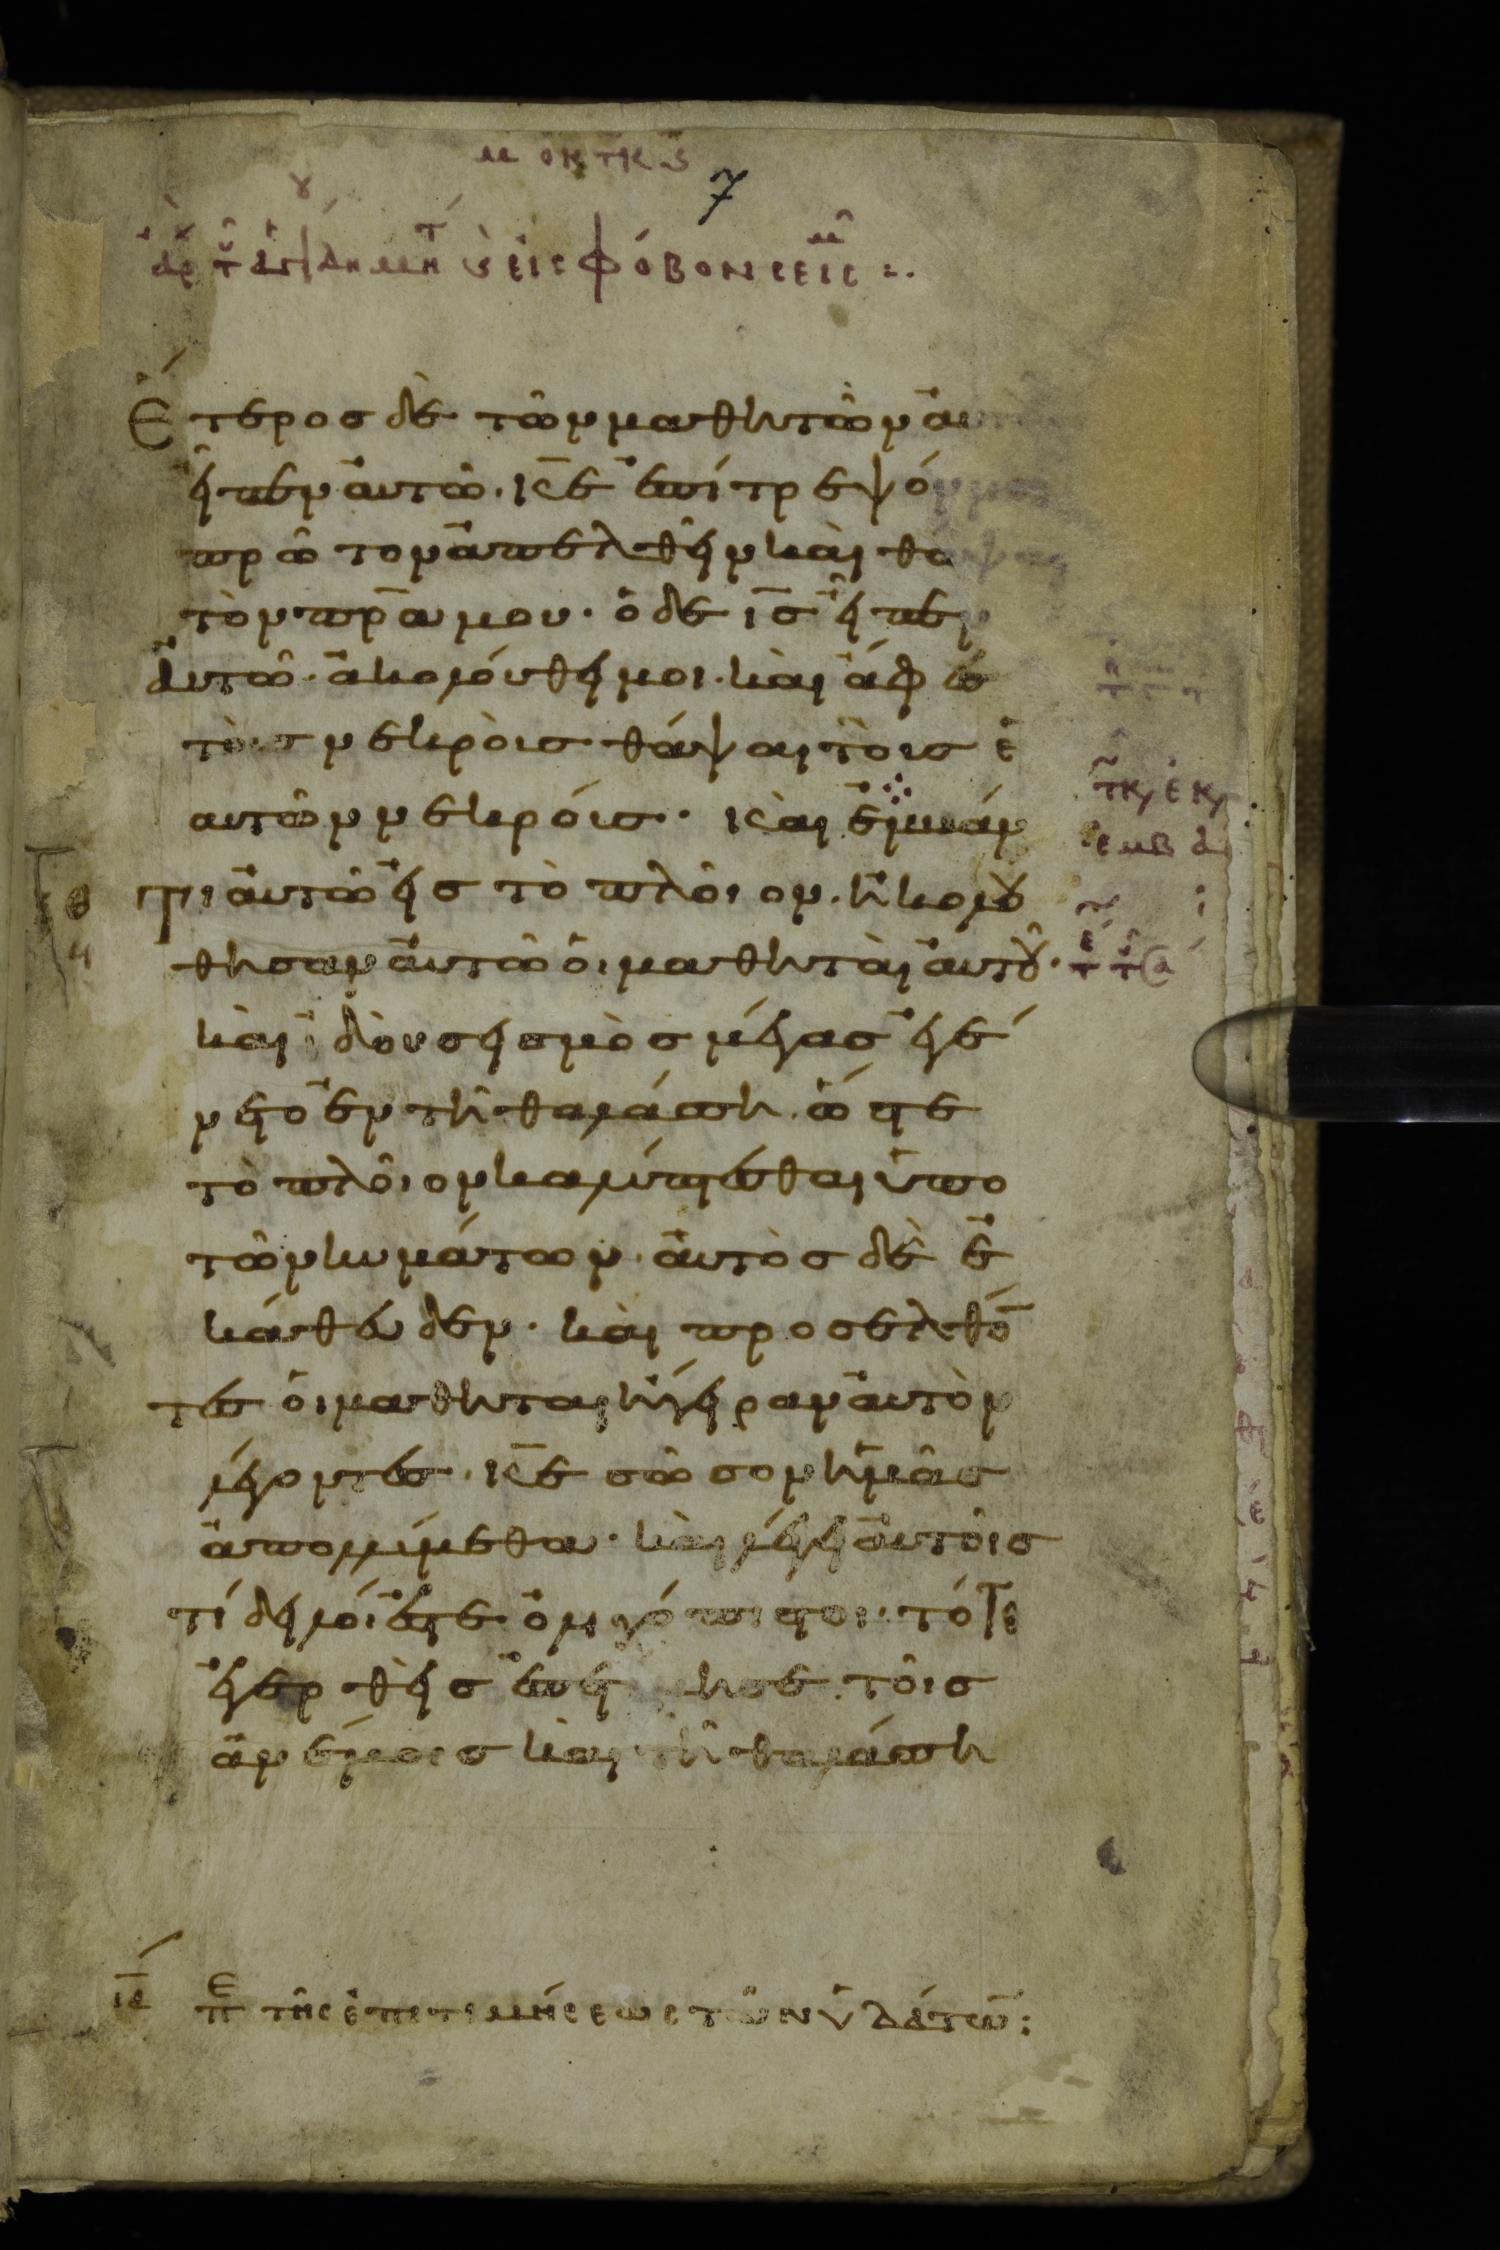 7
Ἕτερος δὲ τῶν μαθητῶν αὐ
εἶπεν αὐτῶ· κ̅ε̅ ἐπίτρεψό
πρῶτον ἀπελθεῖν καὶ θα
τὸν π̅ρ̅α̅ μου· ὁ δὲ ι̅ς̅ εἶπεν
αὐτῶ· ἀκολούθει μοι· καὶ ἄφες
τοὺς νεκροὺς θάψαι τοὺς ἑ
αυτῶν νεκρούς· καὶ ἐμβάν
τι αὐτῶ εἰς τὸ πλοῖον· ἠκολού
θησαν αὐτῶ οἱ μαθηταὶ αὐτοῦ·
καὶ ἰδοὺ σεισμὸς μέγας ἐγέ
νετο ἐν τῇ θαλάσσῃ· ὥστε
τὸ πλοῖον καλύπτεσθαι ὑπὸ
τῶν κυμάτων· αὐτὸς δὲ ἐ
κάθευδεν· καὶ προσελθό
τες οἱ μαθηταὶ ἤγειραν αὐτὸν
λέγοντες· κ̅ε̅ σῶσον ἡμᾶς
ἀπολλύμεθα· καὶ λέγει αὐτοῖς
τί δειλοί ἐστε ὀλιγόπιστοι· τότε
ἐγερθεὶς ἐπετίμησε τοῖς
ἀνέμοις καὶ τῇ θαλάσσῃ
ι̅ε̅ πε τῆς ἐπιτιμήσεως τῶν ὑδάτω̅: